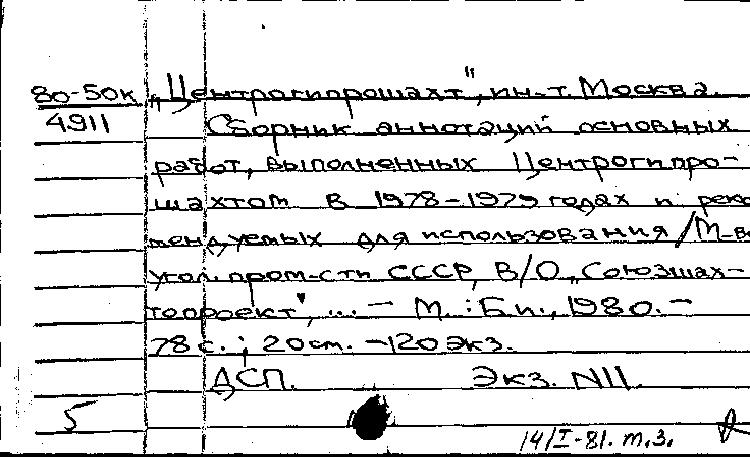 80-50к „Центрогипрошахт", ин-т. Москва.
4911 Сборник аннотаций основных
работ, выполненных Центрогипро-
шахтом в 1978-1979 годах и реко
мендуемых для использования / М-во
угол. пром-сти СССР, В/О „Союзшах-
топроект", ... - М.: Б.и., 1980. -
78 с.; 20 см. - 120 экз.
ДСП. Экз. N11.
5
14/I-81. т.з.